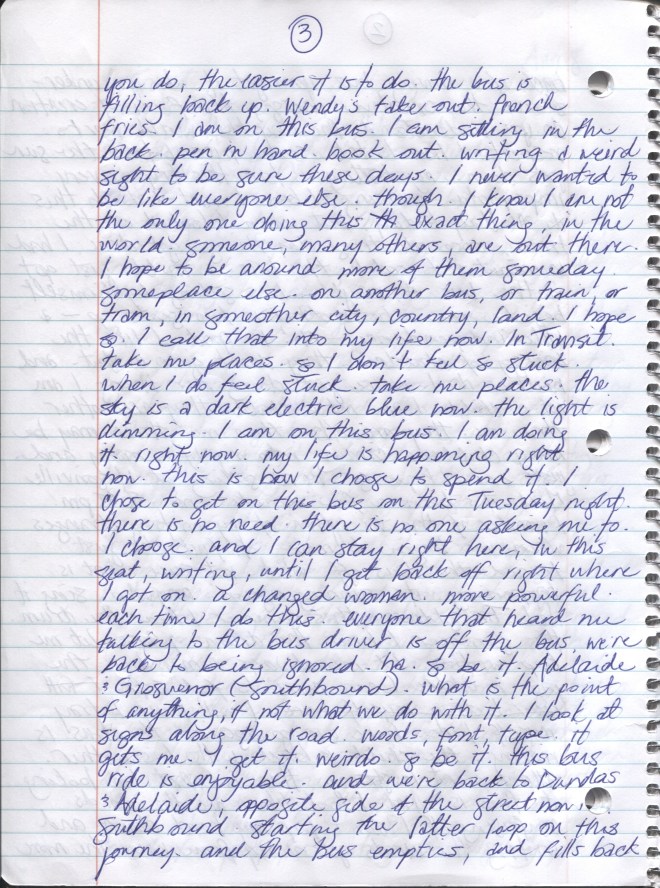 3
you do, the easier it is to do. the bus is
filling back up. Wendy's take out. french
fries. I am on this bus. I am sitting in the
back. pen in hand. book out. writing a weird
sight to be sure these days. I never wanted to
be like everyone else. though I know I am not
the only one doing this exact thing, in the
world. someone, many others, are out there.
I hope to be around more of them someday
someplace else. on another bus, or train, or
tram, in someother city, country, land. I hope
so. I call that into my life now. In Transit.
take me places. so I don't feel so stuck.
when I do feel stuck. take me places. the
sky is a dark electric blue now. the light is
dimming. I am on this bus. I am doing
it. right now. my life is happening right
now. this is how I choose to spend it. I
chose to get on this bus on this Tuesday night.
there is no need. there is no one asking me to.
I choose. and I can stay right here, in this
seat, writing, until I get back off right where
I got on. a changed woman. more powerful.
each time I do this. everyone that heard me
talking to the bus driver is off the bus, we're
back to being ignored. ha. so be it. Adelaide
& Grosvenor (Southbound). what is the point
of anything, if not what we do with it. I look at
signs along the road. words, font, type. it
gets me. I get it. weirdo. so be it. this bus
ride is enjoyable. and we're back to Dundas
& Adelaide, opposite side of the street now
southbound. starting the latter loop on this
journey. and the bus empties, and fills back